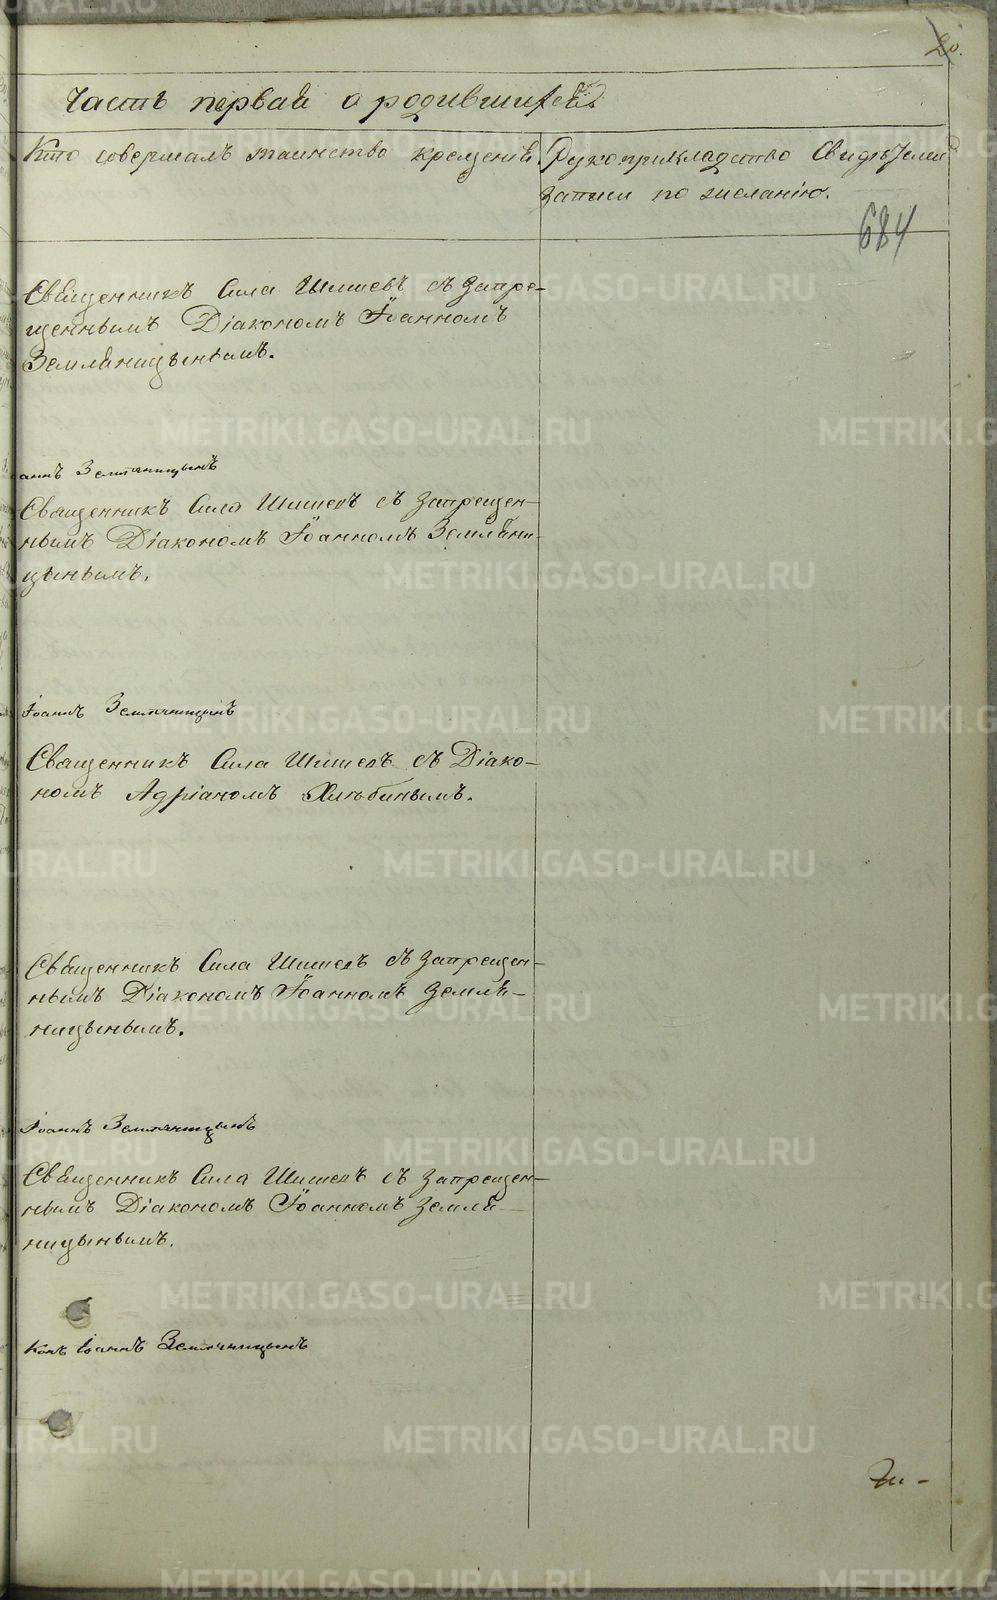 20.
Часть первая о родившихся
Кто совершалъ таинство крещенія.
Рукоприкладство свидѣтелей
записи по желанію.
684
Священникъ Сила Шишевъ съ запре-
щеннымъ Діакономъ Іоанномъ
Земляницынымъ.
аннъ Земляницынъ
Священникъ Сила Шишевъ съ запрещен-
нымъ Діакономъ Іоанномъ Земляни-
цынымъ.
Іоаннъ Земляницынъ
Священникъ Сила Шишевъ съ Діако-
номъ Адріаномъ Хлѣбинымъ.
Священникъ Сила Шишевъ съ запрещен-
нымъ Діакономъ Іоанномъ Земля-
ницынымъ.
Іоаннъ Земляницынъ
Священникъ Сила Шишевъ съ запрещен-
нымъ Діакономъ Іоанномъ Земля-
ницынымъ.
конъ Іоаннъ Земляницынъ
METRIKI.GASO-URAL.RU